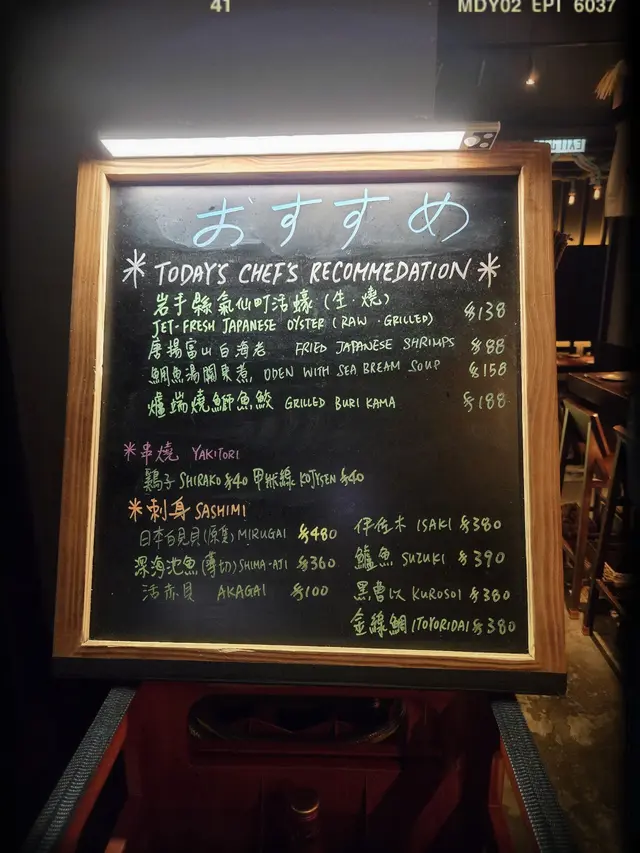 41
MDY02 EPT 6037
おすすめ
* TODAY'S CHEF'S RECOMMEDATION *
岩手縣氣仙町活蠔 (生·燒)
JET-FRESH JAPANESE OYSTER (RAW · GRILLED) $138
唐揚富山白海老 FRIED JAPANESE SHRIMPS $88
鯛魚湯關東煮, ODEN WITH SEA BREAM SOUP $158
爐端燒鰤魚鮫 GRILLED BURI KAMA $188
* 串燒 YAKITORI
鷄子 SHIRAKO $40 甲狀線 KOJYSEN $40
* 刺身 SASHIMI
日本白見貝 MIRUGAI $480
深海池魚 (薄切) SHIMA-AJI $360
活赤貝 AKAGAI $100
伊佐木 ISAKI $380
鱸魚 SUZUKI $390
黑曹以 KUROSOI $380
金線鯛 ITOYORIDAI $380